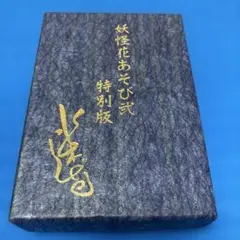 妖怪花あそび弐
特別版